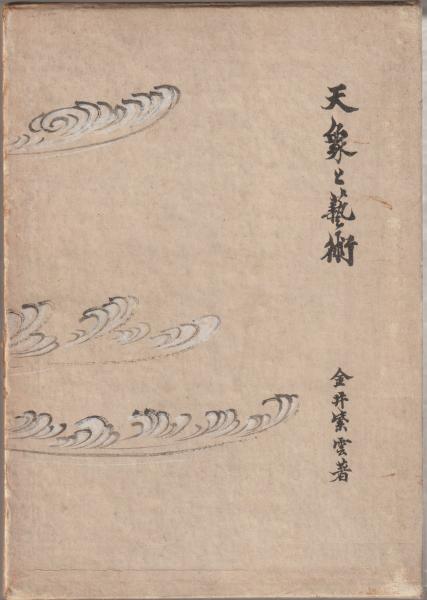 天象と藝術
金井紫雲著